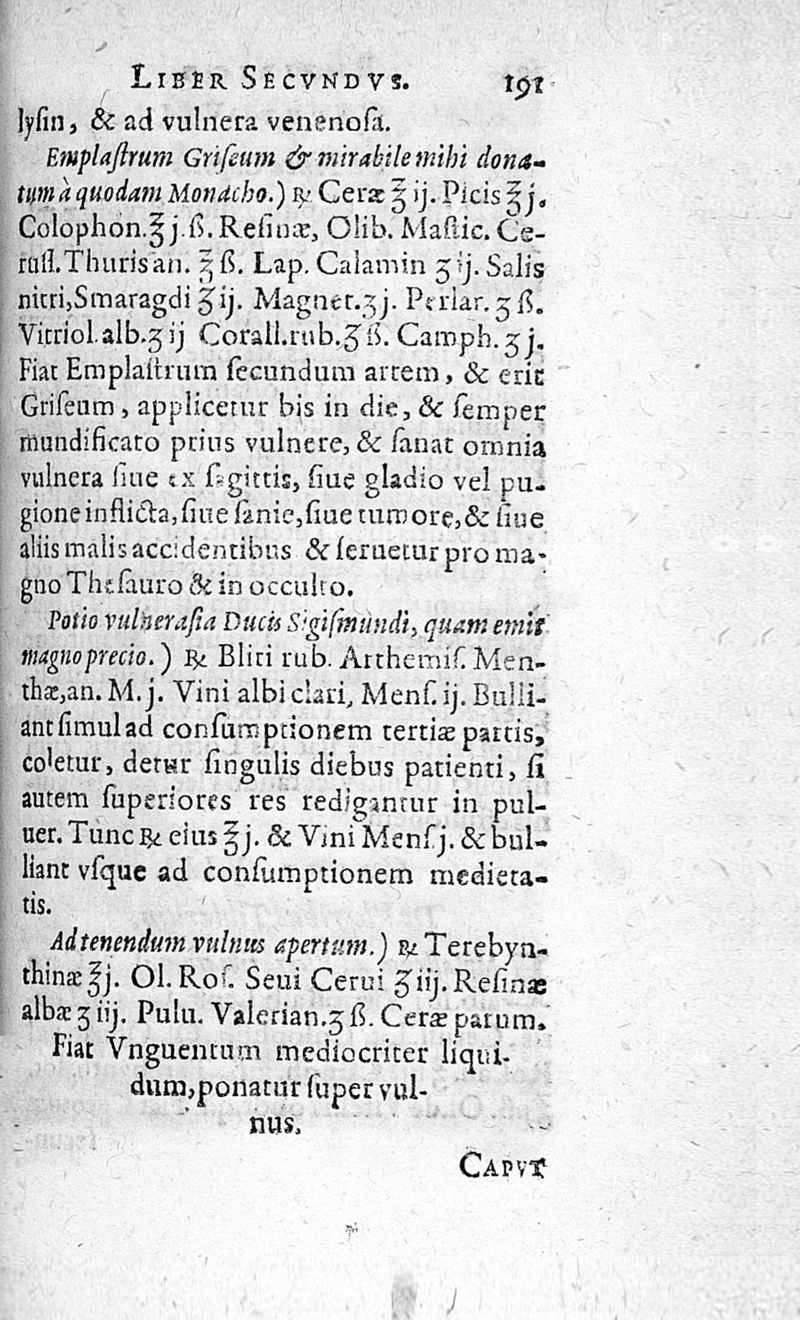 LIBER SECVNDVS. 191
lyſin, & ad vulnera venenoſa.
Emplaſtrum Griſeum & mirabile mihi dona-
tum à quodam Monacho.) ℞ Ceræ ℥ ij. Picis ℥ j.
Colophon. ℥ j. ß. Reſinæ, Olib. Maſtic. Ce-
ruſſ. Thuris an. ℥ ß. Lap. Calamin ʒ ij. Salis
nitri, Smaragdi ʒ ij. Magnet. ʒ j. Perlar. ʒ ß.
Vitriol. alb. ʒ ij Corall. rub. ʒ ß. Camph. ʒ j.
Fiat Emplaſtrum ſecundum artem, & erit
Griſeum, applicetur bis in die, & ſemper
mundificato prius vulnere, & ſanat omnia
vulnera ſiue ex ſagittis, ſiue gladio vel pu-
gione inflicta, ſiue ſanie, ſiue tumore, & ſiue
aliis malis accidentibus & ſeruetur pro ma-
gno Theſauro & in occulto.
Potio vulneraſia Ducis Sigiſmundi, quam emit
magno precio.) ℞ Bliti rub. Arthemiſ. Men-
thæ, an. M. j. Vini albi clari, Menſ. ij. Bulli-
ant ſimul ad conſumptionem tertiæ partis,
coletur, detur ſingulis diebus patienti, ſi
autem ſuperiores res redigantur in pul-
uer. Tunc ℞ eius ℥ j. & Vini Menſ j. & bul-
liant vſque ad conſumptionem medieta-
tis.
Ad tenendum vulnus apertum.) ℞ Terebyn-
thinæ ℥ j. Ol. Roſ. Seui Cerui ʒ iij. Reſinæ
albæ ʒ iij. Pulu. Valerian. ʒ ß. Ceræ parum.
Fiat Vnguentum mediocriter liqui-
dum, ponatur ſuper vul-
nus.
CAPVT